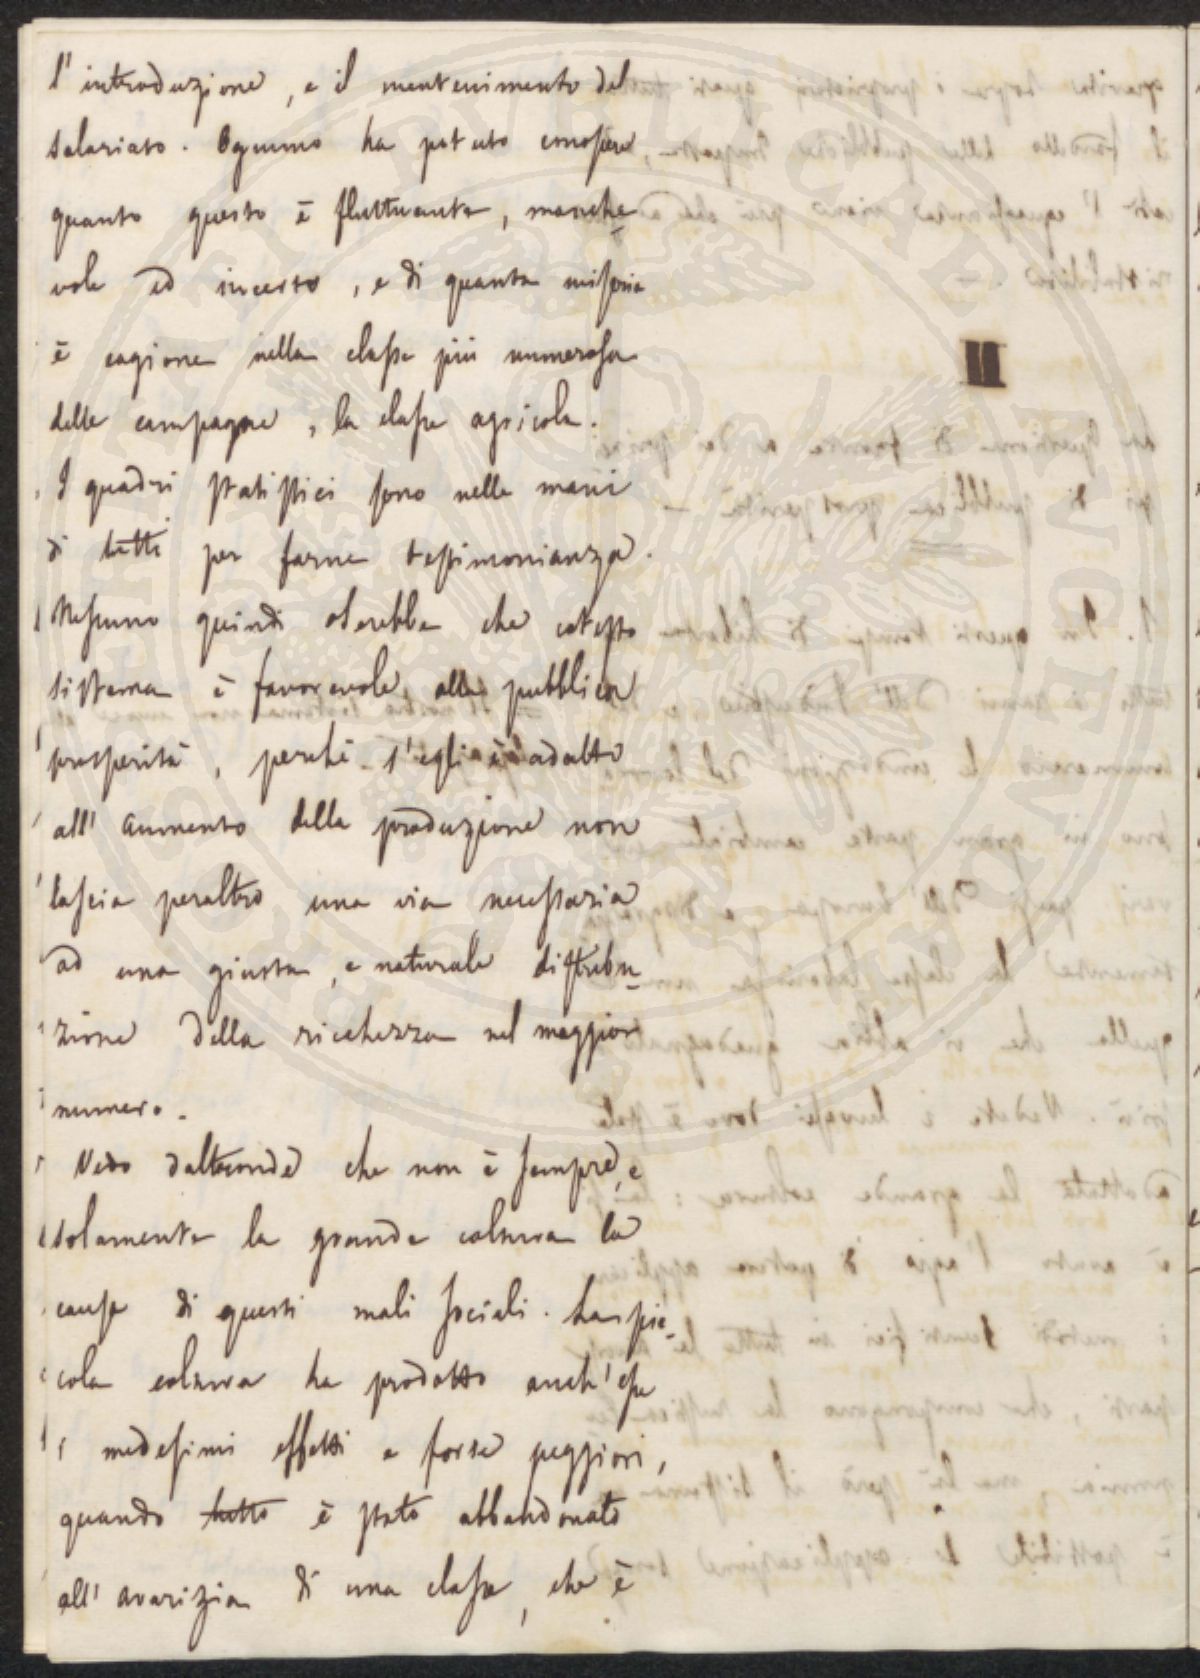 l'introduzione, e il mantenimento del
salariato. Ognuno ha potuto conoscere
quanto questo è fluttuante, manche-
vole ed incerto, e di quanta miseria
è cagione nella classe più numerosa
delle campagne, la classe agricola.
I quadri statistici sono nelle mani
di tutti per farne testimonianza.
Nessuno quindi oserebbe che cotesto
sistema è favorevole alla pubblica
prosperità, perchè s'egli è adatto
all'aumento della produzione non
lascia peraltro una via necessaria
ad una giusta, e naturale distribu-
zione della ricchezza nel maggior
numero.
Vedo dalteronde che non è sempre, e
solamente la grande coltura la
causa di questi mali sociali. La pic-
cola coltura ha prodotto anch'essa
i medesimi effetti e forse peggiori,
quando tutto è stato abbandonato
all'avarizia di una classe, che è